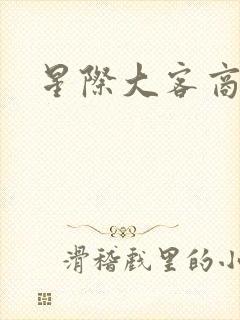 星際大客商
滑稽戏里的小